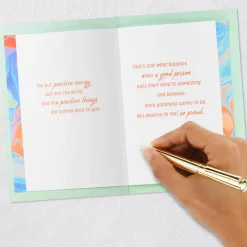 You put positive energy
out into the world,
and now positive things
are coming back to you.
That's just what happens
when a good person
puts their mind to something
and believes–
more goodness comes to be.
You deserve to feel so proud.